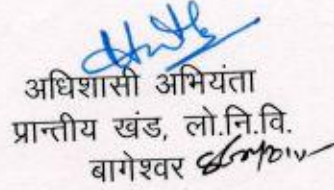 अधिशासी अभियंता
प्रान्तीय खंड, लो.नि.वि.
बागेश्वर